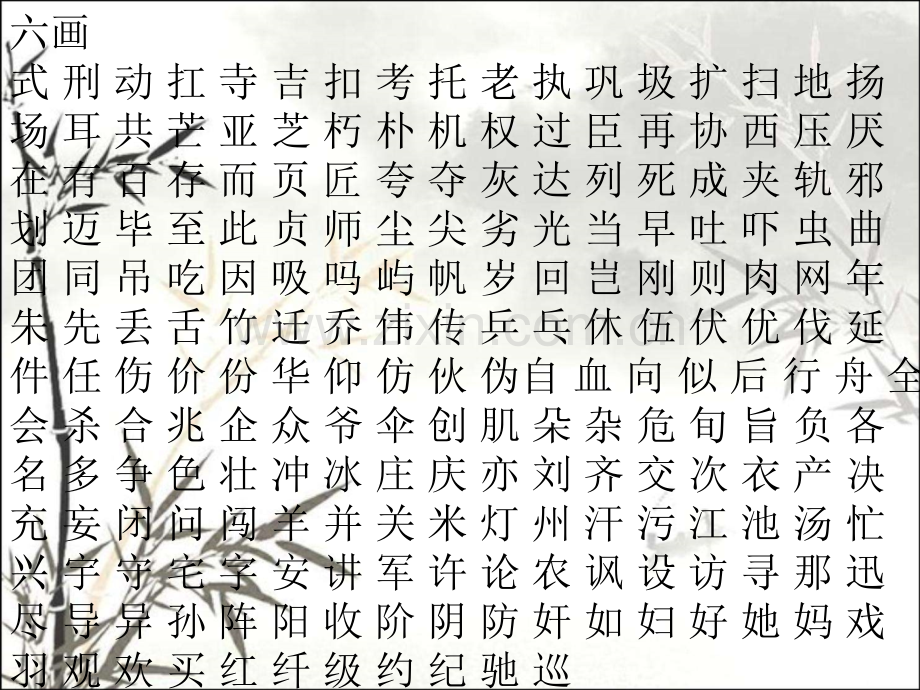 六画
式 刑 动 扛 寺 吉 扣 考 托 老 执 巩 圾 扩 扫 地 扬
场 耳 共 芒 亚 芝 朽 朴 机 权 过 臣 再 协 西 压 厌
在 有 百 存 而 页 匠 夸 夺 灰 达 列 死 成 夹 轨 邪
划 迈 毕 至 此 贞 师 尘 尖 劣 光 当 早 吐 吓 虫 曲
团 同 吊 吃 因 吸 吗 屿 帆 岁 回 岂 刚 则 肉 网 年
朱 先 丢 舌 竹 迁 乔 伟 传 乒 乓 休 伍 伏 优 伐 延
件 任 伤 价 份 华 仰 仿 伙 伪 自 血 向 似 后 行 舟 全
会 杀 合 兆 企 众 爷 伞 创 肌 朵 杂 危 旬 旨 负 各
名 多 争 色 壮 冲 冰 庄 庆 亦 刘 齐 交 次 衣 产 决
充 妄 闭 问 闯 羊 并 关 米 灯 州 汗 污 江 池 汤 忙
兴 宇 守 宅 字 安 讲 军 许 论 农 讽 设 访 寻 那 迅
尽 导 异 孙 阵 阳 收 阶 阴 防 奸 如 妇 好 她 妈 戏
羽 观 欢 买 红 纤 级 约 纪 驰 巡
www.zixin.com.cn